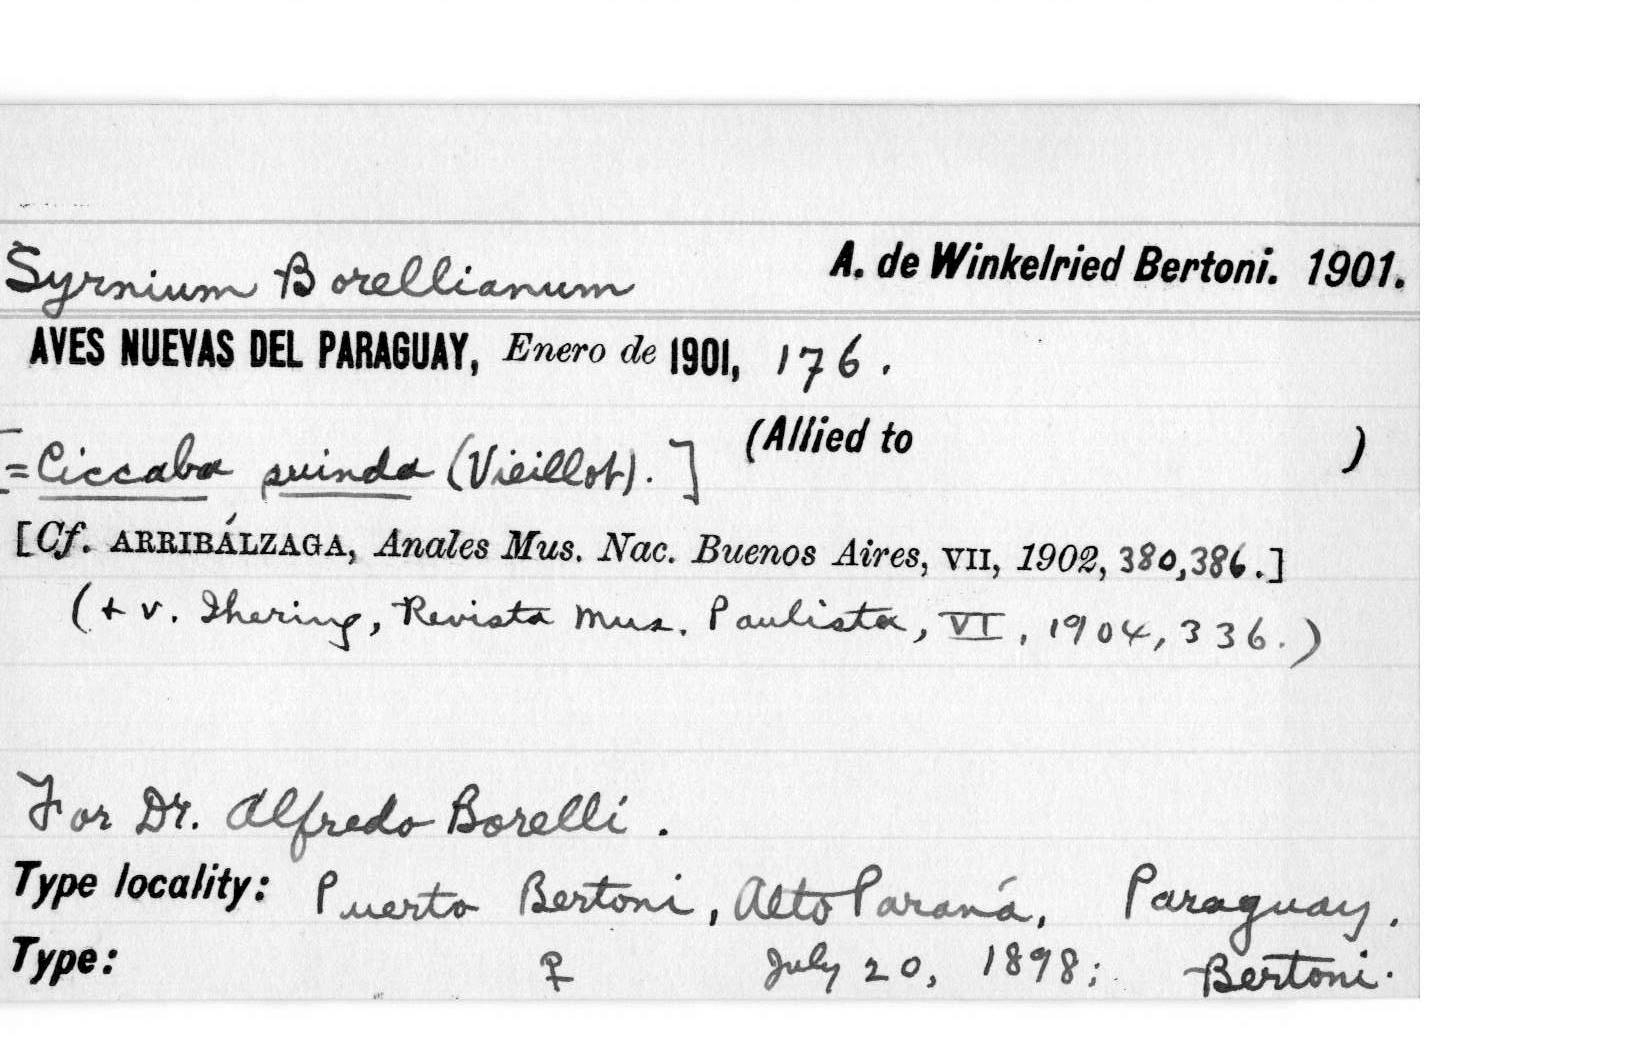 Syrnium Borellianum A. de Winkelried Bertoni. 1901.
AVES NUEVAS DEL PARAGUAY, Enero de 1901, 176.
[=Ciccaba suinda (Vieillot).] (Allied to )
[Cf. ARRIBÁLZAGA, Anales Mus. Nac. Buenos Aires, VII, 1902, 380,386.]
(+ v. Ihering, Revista Mus. Paulista, VI, 1904, 336.)
For Dr. Alfredo Borelli.
Type locality: Puerto Bertoni, Alto Paraná, Paraguay.
Type: ♀ July 20, 1898; Bertoni.